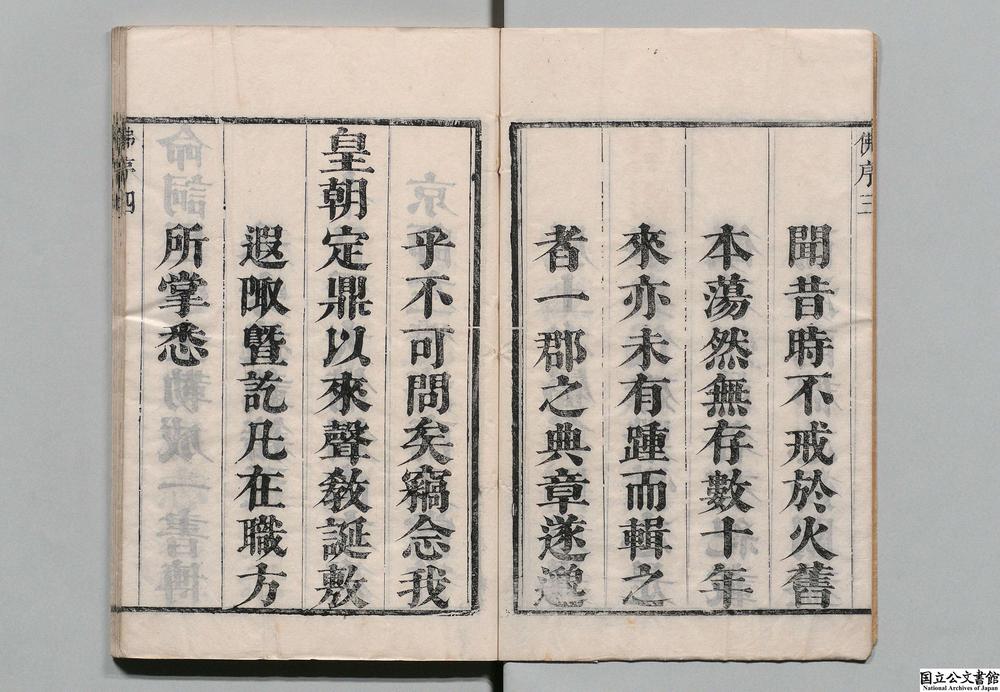 佛序三
聞昔時不戒於火舊
本蕩然無存數十年
來亦未有踵而輯之
者一郡之典章遂邈
乎不可問矣竊念我
皇朝定鼎以來聲敎誕敷
遐陬曁訖凡在職方
所掌悉
佛序四
国立公文書館
National Archives of Japan